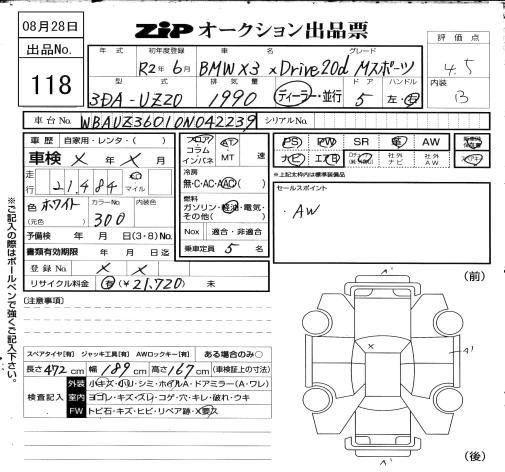 08月28日
ZiP オークション出品票
出品No.
118
評価点
4.5
内装
B
年式 初年度登録 車名 グレード
R2年6月 BMW X3 xDrive20d Mスポーツ
型式 排気量 ドア ハンドル
3DA-UZ20 1990 ディーラー・並行 5 左・右
車台No. WBAUZ36010N042239 シリアルNo.
車歴 自家用・レンタ・( )
車検 × 年 × 月
走行 21,484 km マイル
色 ホワイト カラーNo. 300
(元色)
予備検 年 月 日(3・8)No.
書類有効期限 年 月 日迄
登録No. × ×
リサイクル料金 有(¥21,720) 未
フロア コラム インパネ AT MT 速
冷房
無・C・AC・AAC( )
燃料
ガソリン・軽油・電気・
その他( )
Nox 適合・非適合
乗車定員 5 名
PS PW SR 革 AW
ナビ エアB 社外ナビ 社外AW
※上記太枠内は標準装備品
セールスポイント
・AW
(注意事項)
スペアタイヤ[有] ジャッキ工具[有] AWロックキー[有] ある場合のみ○
長さ472cm 幅189cm 高さ167cm (車検証上の寸法)
検査記入
外装 小キズ・小U・シミ・ホイルA・ドアミラー(A・ワレ)
室内 ヨゴレ・キズ・スレ・コゲ・穴・キレ・破れ・ウキ
FW トビ石・キズ・ヒビ・リペア跡・X要久
※ご記入の際はボールペンで強くご記入下さい。
(前)
A'
×
A'
A'
(後)